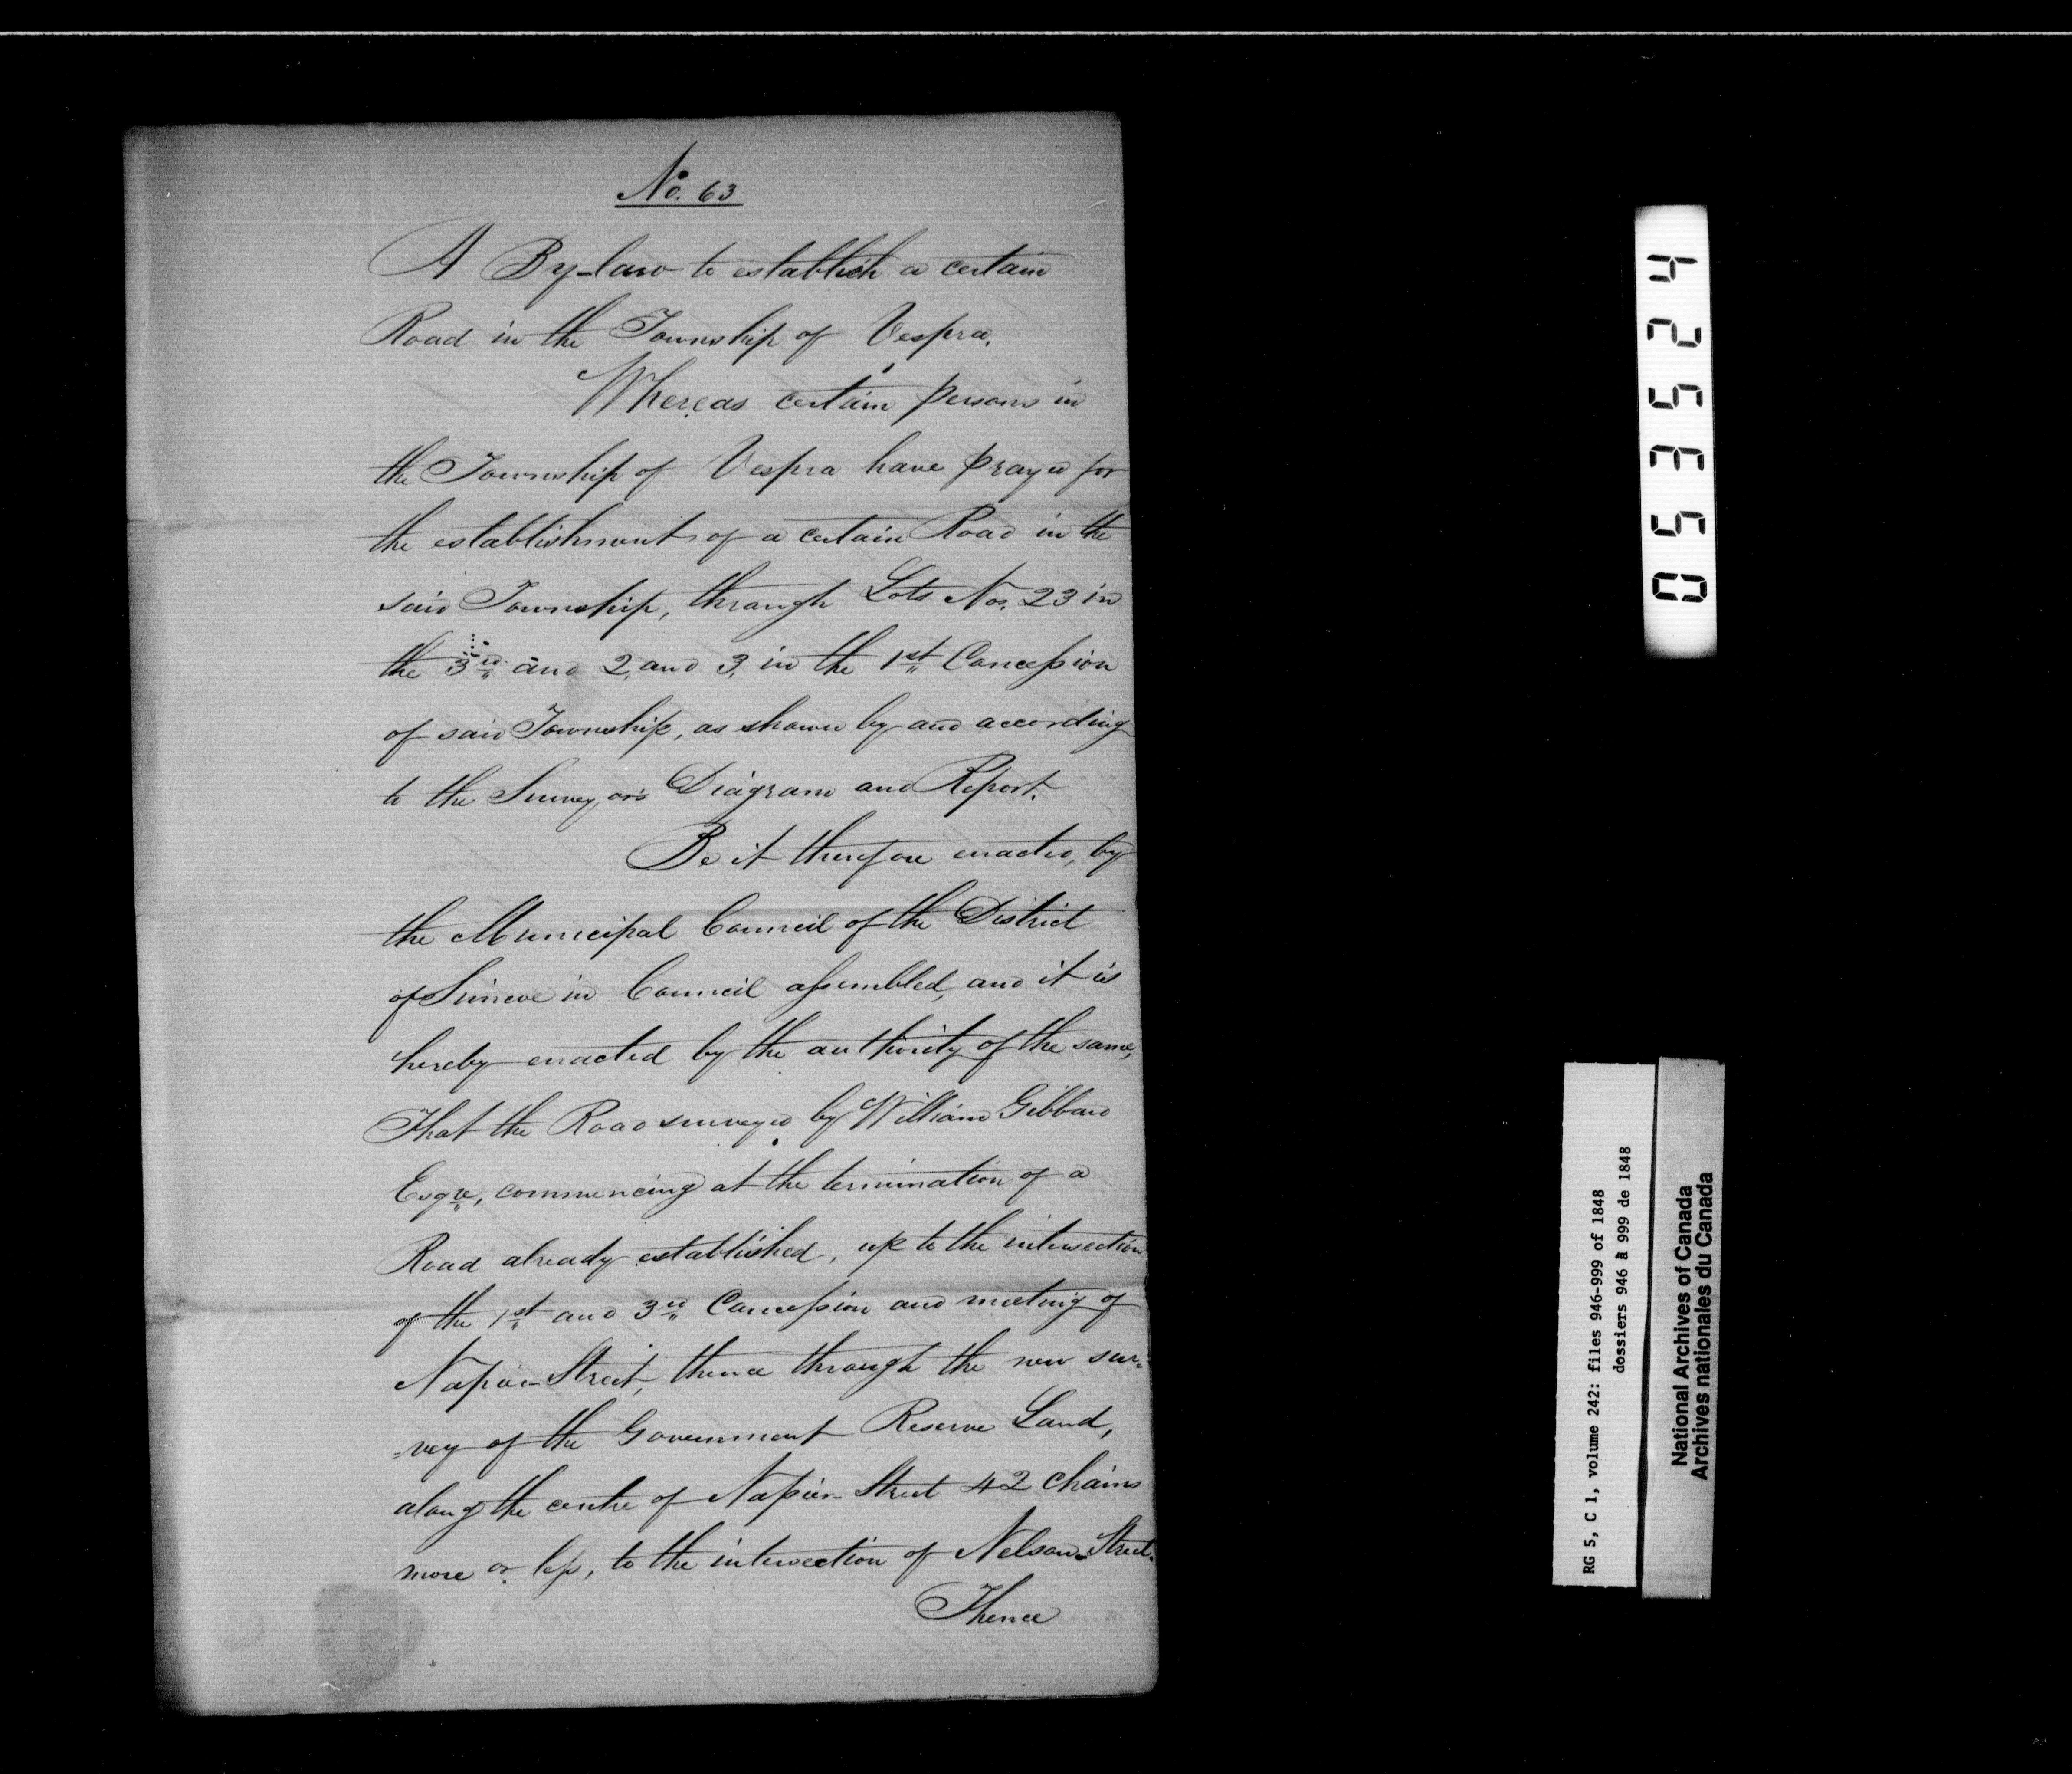 No. 63
A By-law to establish a certain
Road in the Township of Vespra.
Whereas certain persons in
the Township of Vespra have prayed for
the establishment of a certain Road in the
said Township, through Lots Nos. 23 in
the 3rd and 2, and 3, in the 1st Concession
of said Township, as shown by and according
to the Surveyors Diagram and Report.
Be it therefore enacted, by
the Municipal Council of the District
of Simcoe in Council assembled, and it is
hereby enacted by the authority of the same,
That the Road surveyed by William Gibbard
Esqre, commencing at the termination of a
Road already established, up to the intersection
of the 1st and 3rd Concession and meeting of
Napier Street, thence through the new sur=
=vey of the Government Reserve Land,
along the centre of Napier Street 42 chains
more or less, to the intersection of Nelson Street.
Thence
053524
RG 5, C 1, volume 242: files 946-999 of 1848
dossiers 946 à 999 de 1848
National Archives of Canada
Archives nationales du Canada